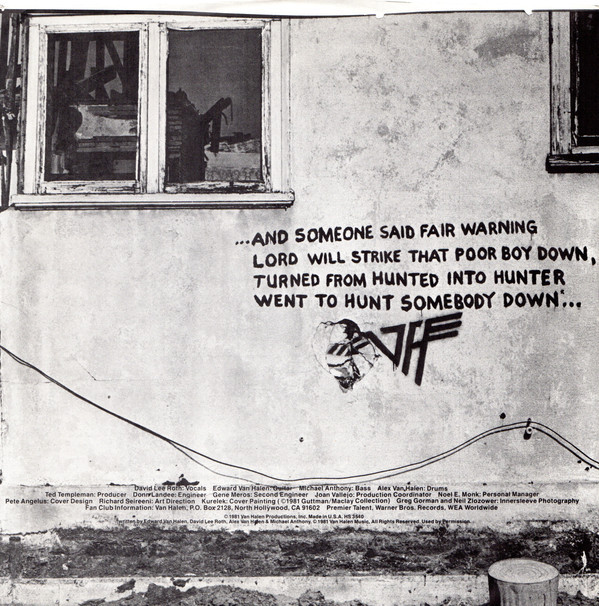 ...AND SOMEONE SAID FAIR WARNING
LORD WILL STRIKE THAT POOR BOY DOWN,
TURNED FROM HUNTED INTO HUNTER
WENT TO HUNT SOMEBODY DOWN...
VH
David Lee Roth: Vocals Edward Van Halen: Guitar Michael Anthony: Bass Alex Van Halen: Drums
Ted Templeman: Producer Donn Landee: Engineer Gene Meros: Second Engineer Joan Vallejo: Production Coordinator Noel E. Monk: Personal Manager
Pete Angelus: Cover Design Richard Seireeni: Art Direction Kurelek: Cover Painting (©1981 Guttman/Maclay Collection) Greg Gorman and Neil Zlozower: Innersleeve Photography
Fan Club Information: Van Halen, P.O. Box 2128, North Hollywood, CA 91602 Premier Talent, Warner Bros. Records, WEA Worldwide
© 1981 Van Halen Productions, Inc. Made in U.S.A. HS 3540
written by Edward Van Halen, David Lee Roth, Alex Van Halen & Michael Anthony. © 1981 Van Halen Music. All Rights Reserved. Used by Permission.